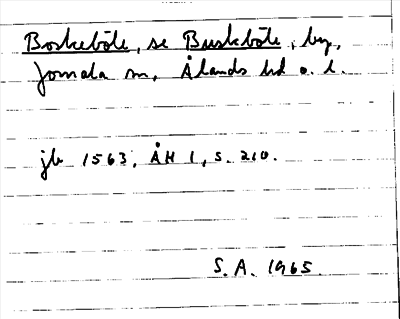 Boskeböle, se Buskböle, by,
Jomala sn, Ålands hd o. l.
jb 1563, ÅH 1, s. 210.
S.A. 1965.